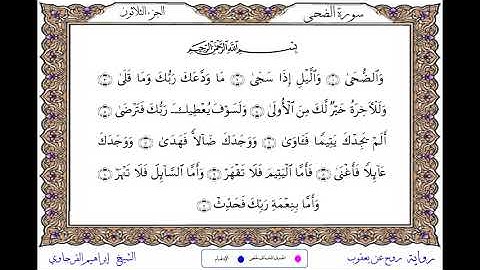 سورة الضحى
الجزء الثلاثون
بِسْمِ اللَّهِ الرَّحْمَٰنِ الرَّحِيمِ
وَالضُّحَىٰ ۝ وَاللَّيْلِ إِذَا سَجَىٰ ۝ مَا وَدَّعَكَ رَبُّكَ وَمَا قَلَىٰ ۝
وَلَلْآخِرَةُ خَيْرٌ لَّكَ مِنَ الْأُولَىٰ ۝ وَلَسَوْفَ يُعْطِيكَ رَبُّكَ فَتَرْضَىٰ ۝
أَلَمْ يَجِدْكَ يَتِيمًا فَـَٔاوَىٰ ۝ وَوَجَدَكَ ضَآلًّا فَهَدَىٰ ۝ وَوَجَدَكَ
عَآئِلًا فَأَغْنَىٰ ۝ فَأَمَّا الْيَتِيمَ فَلَا تَقْهَرْ ۝ وَأَمَّا السَّآئِلَ فَلَا تَنْهَرْ ۝
وَأَمَّا بِنِعْمَةِ رَبِّكَ فَحَدِّثْ ۝
رواية روح عن يعقوب
الإدغام
الشيخ إبراهيم الفرجاوي